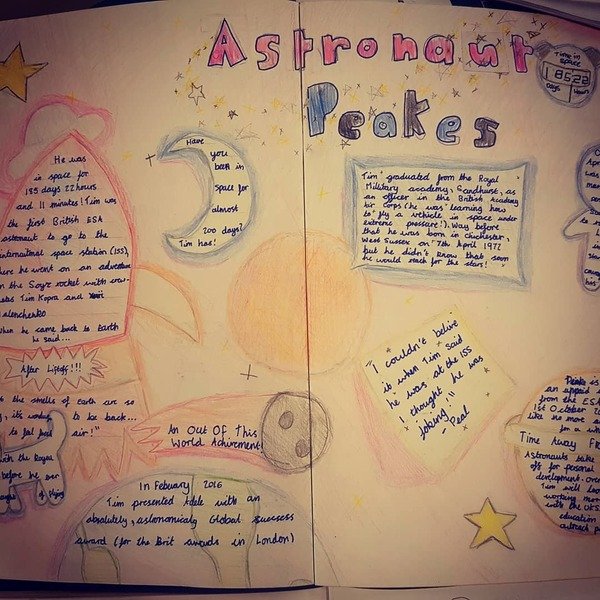 Astronaut
Peakes
Time in
space
18522
Days
Hours
He was
in space for
185 days 22 hours
and 11 minutes! Tim was
the first British ESA
astronaut to go to the
international space station (ISS),
he went on an adventure
the Soyuz rocket with crew
Tim Kopra and
alenchenko
when he came back to Earth
he said...
After Liftoff!!!
the smells of earth are so
to be back...
air!"
with the Royal
before he ever
of flying
Have
you
been in
space for
almost
200 days?
Tim has!
Tim graduated from the Royal
Military academy, Sandhurst, as
an officer in the British Academy
Air Corps (he was learning how
to fly a vehicle in space under
extreme pressure!). Way before
that he was born in Chichester,
West Sussex on 7th April 1972
but he didn't know that soon
he would reach for the stars!
"I couldn't belive
it when Tim said
he was at the ISS
I thought he was
joking."
- Peal
An Out Of This
World Achirement
In Febuary 2016
Tim presented Adele with an
absolutely, astonomicaly Global Success
award (for the Brit awards in London)
Peake is
an appoid
from the ESA
1st October
like no more
for a
Time Away
Astronauts take
off for personal
development. Over
Tim will
working more
with the UKS
education
outreach